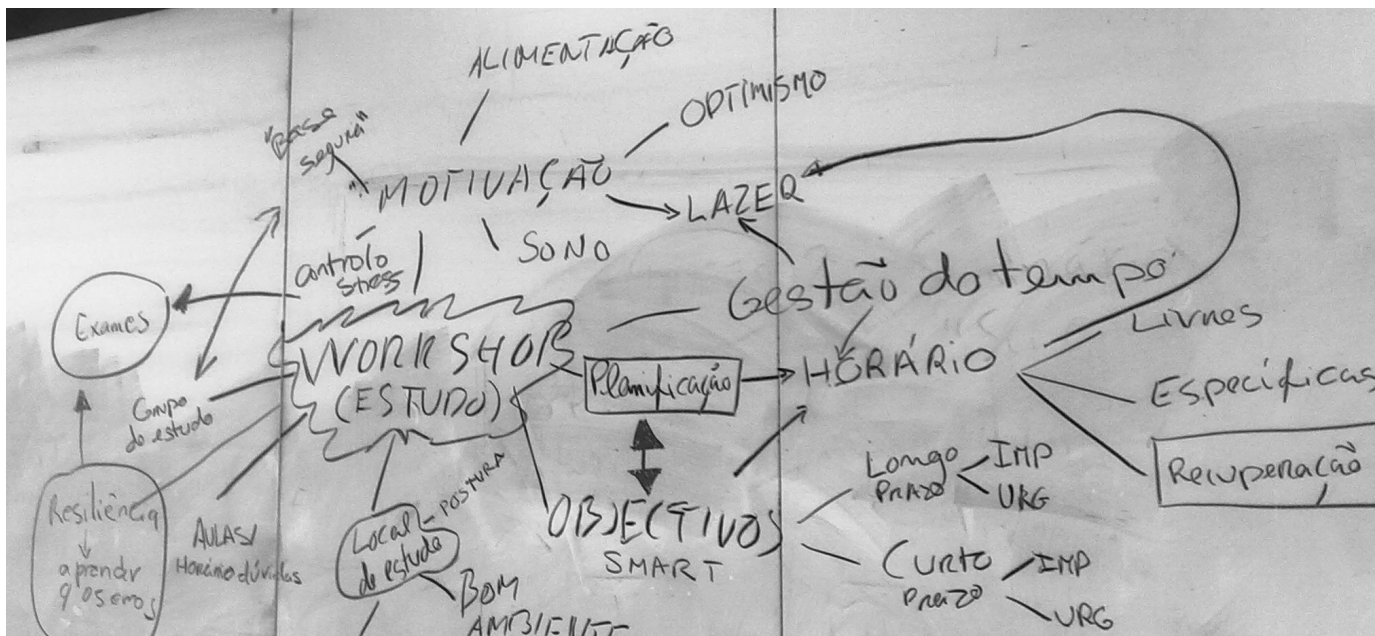 ALIMENTAÇÃO
OPTIMISMO
"Base
segura"
MOTIVAÇÃO
LAZER
SONO
controlo
stress
Gestão do tempo
Exames
WORKSHOP
(ESTUDO)
Planificação
HORÁRIO
Livres
Específicas
Recuperação
Grupo
de estudo
Resiliência
aprender
AULAS/
Horário dúvidas
Local
de estudo
POSTURA
BOM
AMBIENTE
OBJECTIVOS
SMART
Longo
PRAZO
IMP
URG
Curto
Prazo
IMP
URG